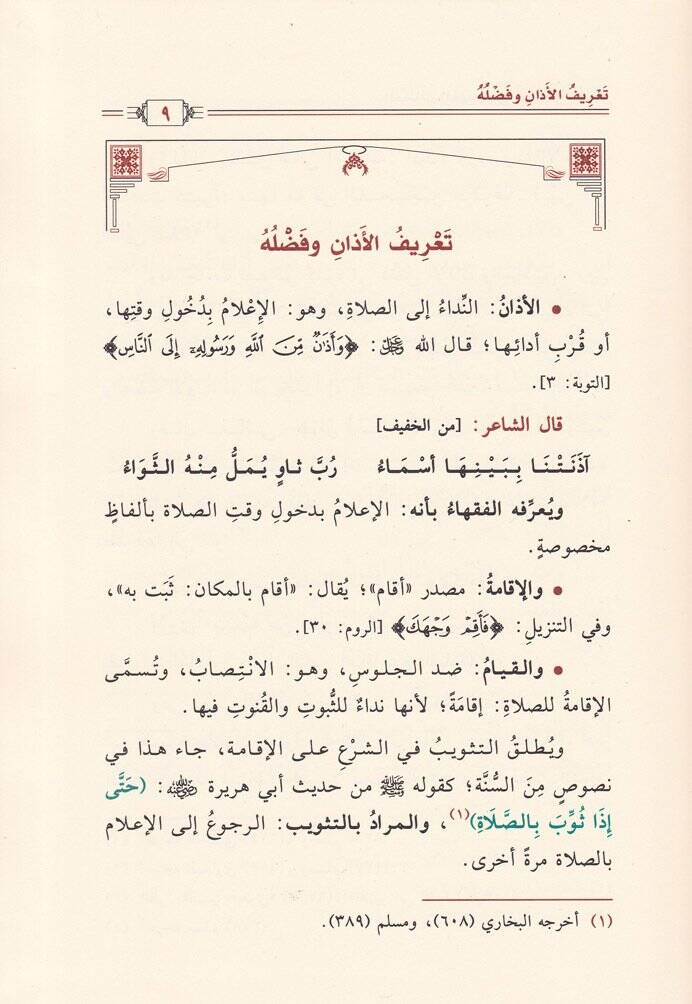 تَعْرِيفُ الأَذانِ وفَضْلُهُ
٩
تَعْرِيفُ الأَذانِ وفَضْلُهُ
• الأذانُ: النِّداءُ إلى الصلاةِ، وهو: الإعْلامُ بِدُخُولِ وقتِها،
أو قُرْبِ أدائِها؛ قال الله ﷻ: ﴿وَأَذَٰنٌ مِّنَ ٱللَّهِ وَرَسُولِهِۦٓ إِلَى ٱلنَّاسِ﴾
[التوبة: ٣].
قال الشاعر: [من الخفيف]
آذَنَتْنَا بِبَيْنِهَا أسْمَاءُ رُبَّ ثاوٍ يُمَلُّ مِنْهُ الثَّوَاءُ
ويُعرِّفه الفقهاءُ بأنه: الإعلامُ بدخولِ وقتِ الصلاة بألفاظٍ
مخصوصةٍ.
• والإقامةُ: مصدر «أقام»؛ يُقال: «أقام بالمكان: ثَبَت به»،
وفي التنزيلِ: ﴿فَأَقِمْ وَجْهَكَ﴾ [الروم: ٣٠].
• والقيامُ: ضد الجلوسِ، وهو: الانْتِصابُ، وتُسمَّى
الإقامةُ للصلاةِ: إقامَةً؛ لأنها نداءٌ للثُّبوتِ والقُنوتِ فيها.
ويُطلقُ التثويبُ في الشرْعِ على الإقامة، جاء هذا في
نصوصٍ مِنَ السُّنَّة؛ كقوله ﷺ من حديث أبي هريرة رضي الله عنه: (حَتَّى
إِذَا ثُوِّبَ بِالصَّلَاةِ)(١)، والمرادُ بالتثويب: الرجوعُ إلى الإعلام
بالصلاة مرةً أخرى.
(١) أخرجه البخاري (٦٠٨)، ومسلم (٣٨٩).